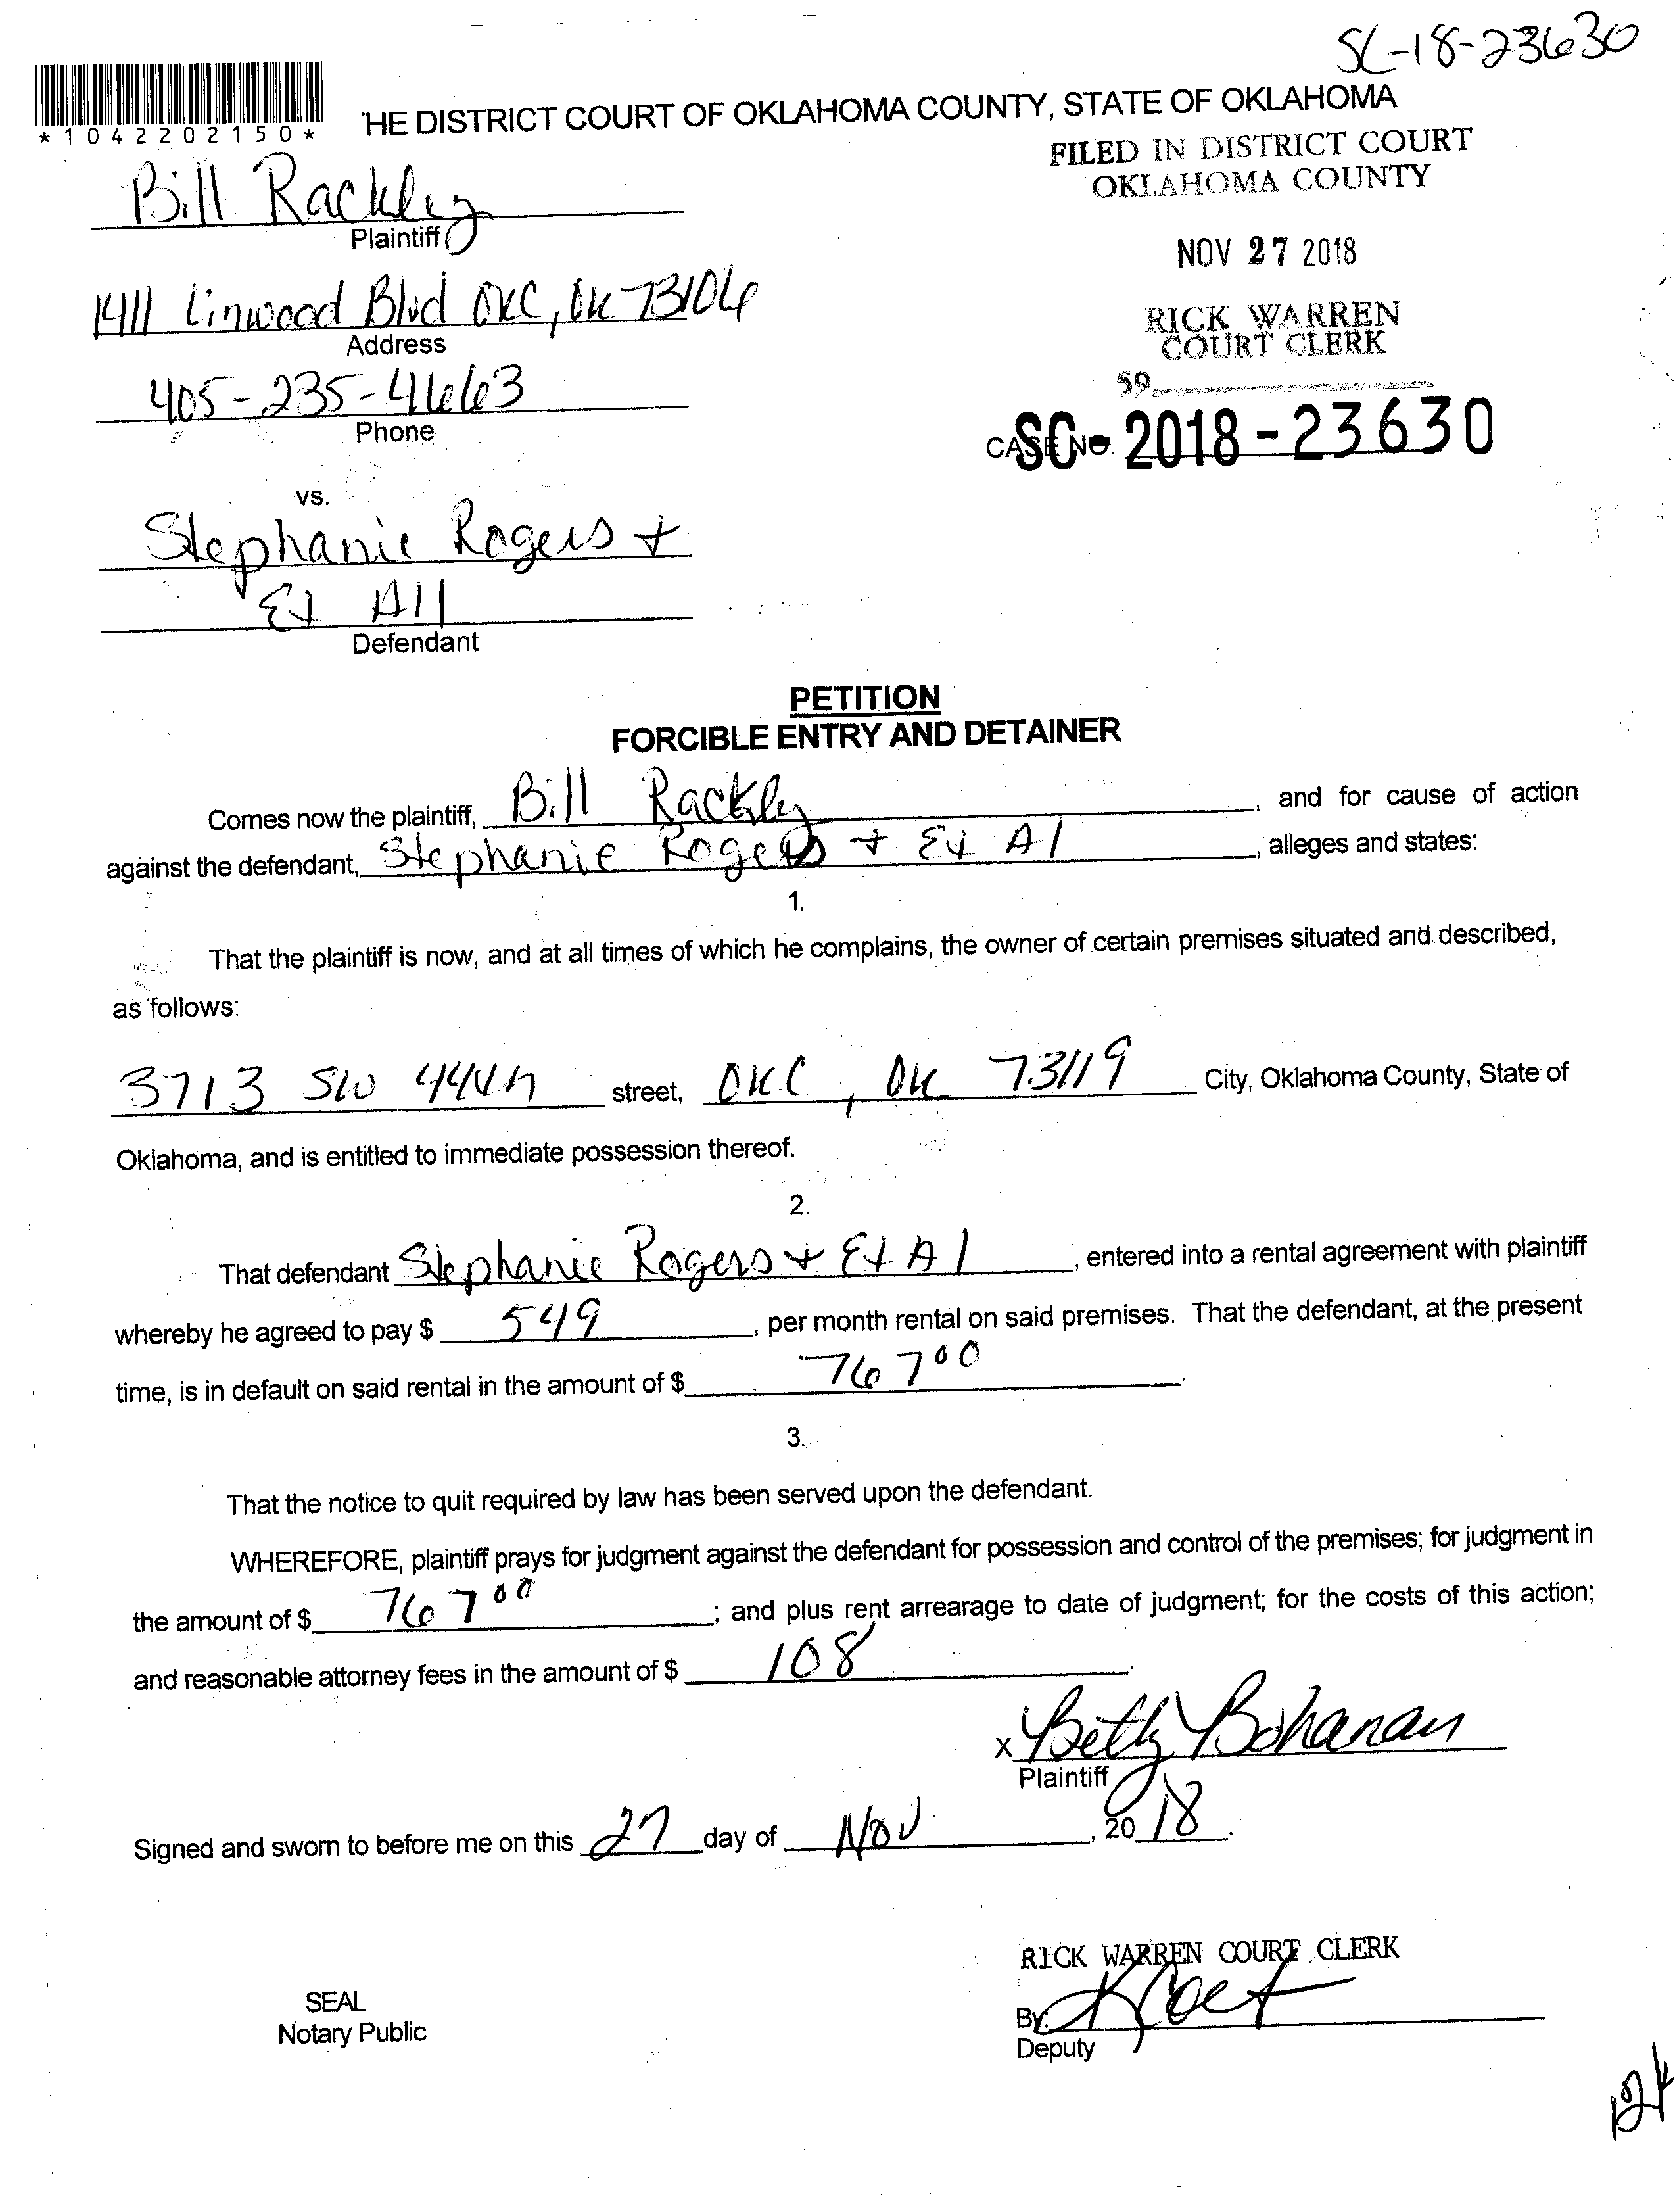 SC-18-23630
*1042202150*
HE DISTRICT COURT OF OKLAHOMA COUNTY, STATE OF OKLAHOMA
FILED IN DISTRICT COURT
OKLAHOMA COUNTY
Bill Rackley
Plaintiff
NOV 27 2018
1411 Linwood Blvd OKC, OK 73106
Address
RICK WARREN
COURT CLERK
405-235-4663
Phone
59
CASE NO.
SC-2018-23630
vs.
Stephanie Rogers +
Et All
Defendant
PETITION
FORCIBLE ENTRY AND DETAINER
Comes now the plaintiff, Bill Rackley, and for cause of action
against the defendant, Stephanie Rogers + Et Al, alleges and states:
1.
That the plaintiff is now, and at all times of which he complains, the owner of certain premises situated and described,
as follows:
3713 SW 44th street, OKC, OK 73119 City, Oklahoma County, State of
Oklahoma, and is entitled to immediate possession thereof.
2.
That defendant Stephanie Rogers + Et Al, entered into a rental agreement with plaintiff
whereby he agreed to pay $ 549, per month rental on said premises. That the defendant, at the present
time, is in default on said rental in the amount of $ 767 00.
3.
That the notice to quit required by law has been served upon the defendant.
WHEREFORE, plaintiff prays for judgment against the defendant for possession and control of the premises; for judgment in
the amount of $ 767 00; and plus rent arrearage to date of judgment; for the costs of this action;
and reasonable attorney fees in the amount of $ 108.
x Betty Bohanan
Plaintiff
Signed and sworn to before me on this 27 day of Nov, 20 18.
RICK WARREN COURT CLERK
SEAL
Notary Public
By:
Deputy